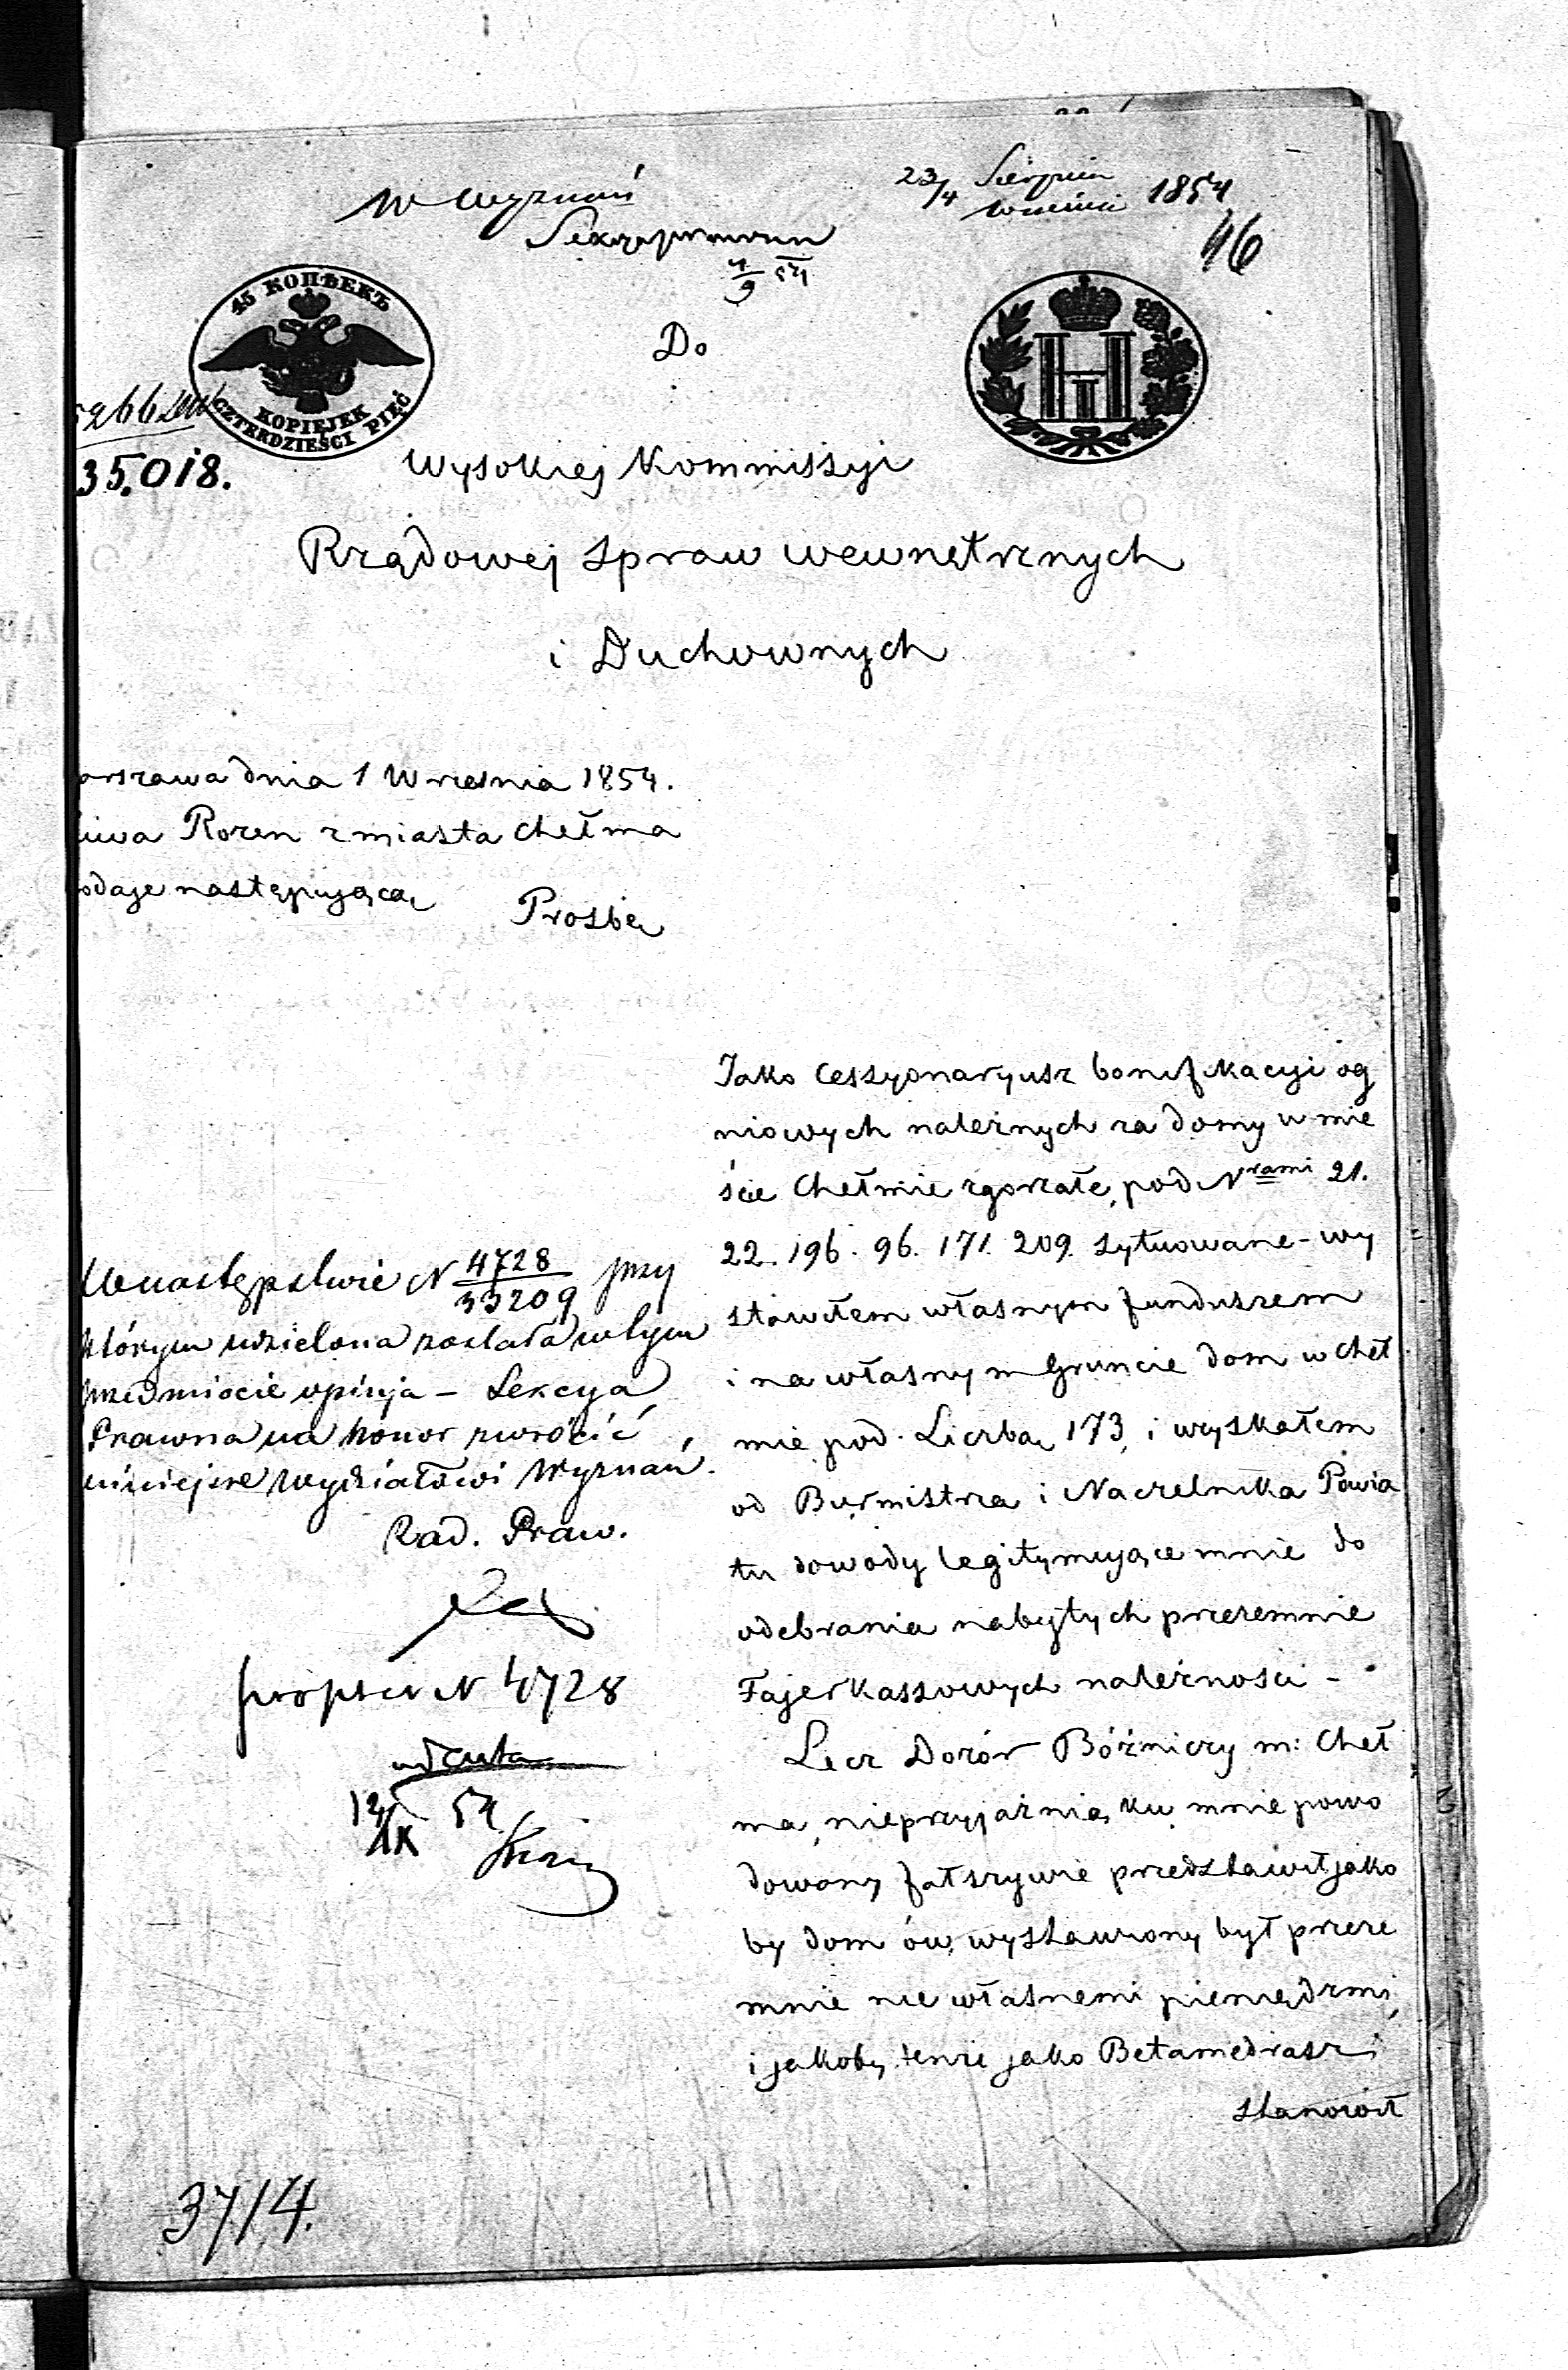 W Wyznań
23/4 Sierpnia
Września 1854
46
4/9 54
45 КОПѢЕКЪ
KOPIEJEK
CZTERDZIEŚCI PIĘĆ
Н
Do
35.018.
Wysokiej Kommissyi
Rządowej Spraw wewnętrznych
i Duchownych
arszawa dnia 1 Wrzesnia 1854.
Rozen z miasta Chełma
odaje następującą
Prosbę
Jako Cessyonaryusz bonifikacyi og
niowych należnych za domy w mie
ście Chełmie zgorzałe, pod Nrami 21.
22. 196. 96. 171. 209. sytuowane - wy
stawiłem własnym funduszem
i na własnym Gruncie dom w Cheł
mie pod Liczbą 173, i wyskałem
od Burmistrza i Naczelnika Powia
tu dowody legitymujące mnie do
odebrania nabytych przezemnie
Fajerkassowych należnosci -
Lecz Dozór Bóżniczy m: Cheł
ma, nieprzyjaźnią ku mnie powo
dowany fałszywie przedstawił jako
by dom ów wystawiony był przeze
mnie nie własnemi pieniędzmi,
i jakoby tenże jako Betamedrasz
stanowił
W następstwie N 4728/33209 przy
którym udzielona została w tym
przedmiocie opinja - Sekcya
Prawna ma honor zwrócić
niniejsze Wydziałowi Wyznań.
Rad. Praw.
N 4728
ad acta
12/IX 54
3714.